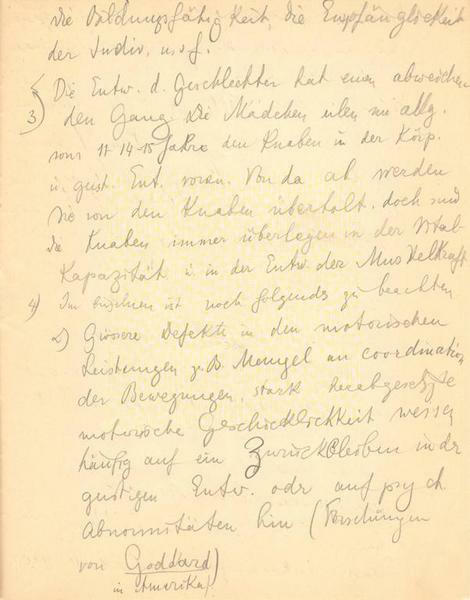 die Bildungsfähigkeit, die Empfänglichkeit
der Indiv. u.s.f.
3) Die Entw. d. Geschlechter hat einen abweichen
den Gang Die Mädchen eilen im allg.
vom 11 14-15 Jahre den Knaben in der Körp.
u. geist. Ent. voran. Von da ab werden
sie von den Knaben überholt. doch sind
die Knaben immer überlegen in der Vital-
Kapazität u in der Entw. der Muskelkraft
4) Im einzelnen ist noch folgendes zu beachten
α) Grössere Defekte in den motorischen
Leistungen z.B. Mengel an coordination
der Bewegungen, stark herabgesetzte
motorische Geschicklichkeit weisen
häufig auf ein Zurückbleiben in der
geistigen Entw. odr auf psych
Abnormitäten hin (Forschungen
von Goddard)
in Amerika)